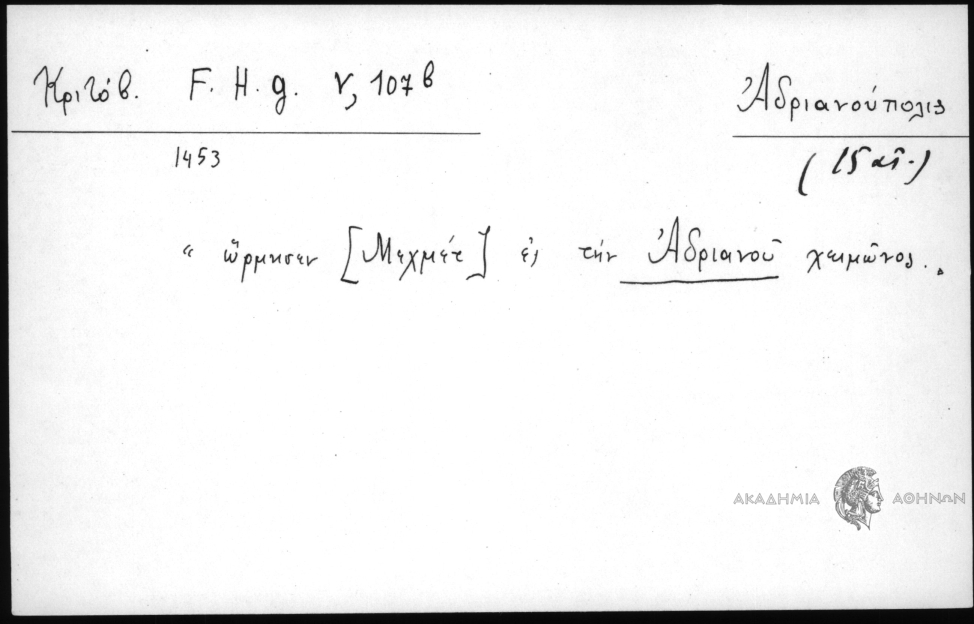 Κριτόβ. F. H. g. V, 107 β
Ἀδριανούπολις
1453
(15 αἰ.)
“ ὥρμησεν [Μεχμέτ] ἐς τὴν Ἀδριανοῦ χειμῶνος.„
ΑΚΑΔΗΜΙΑ ΑΘΗΝΩΝ